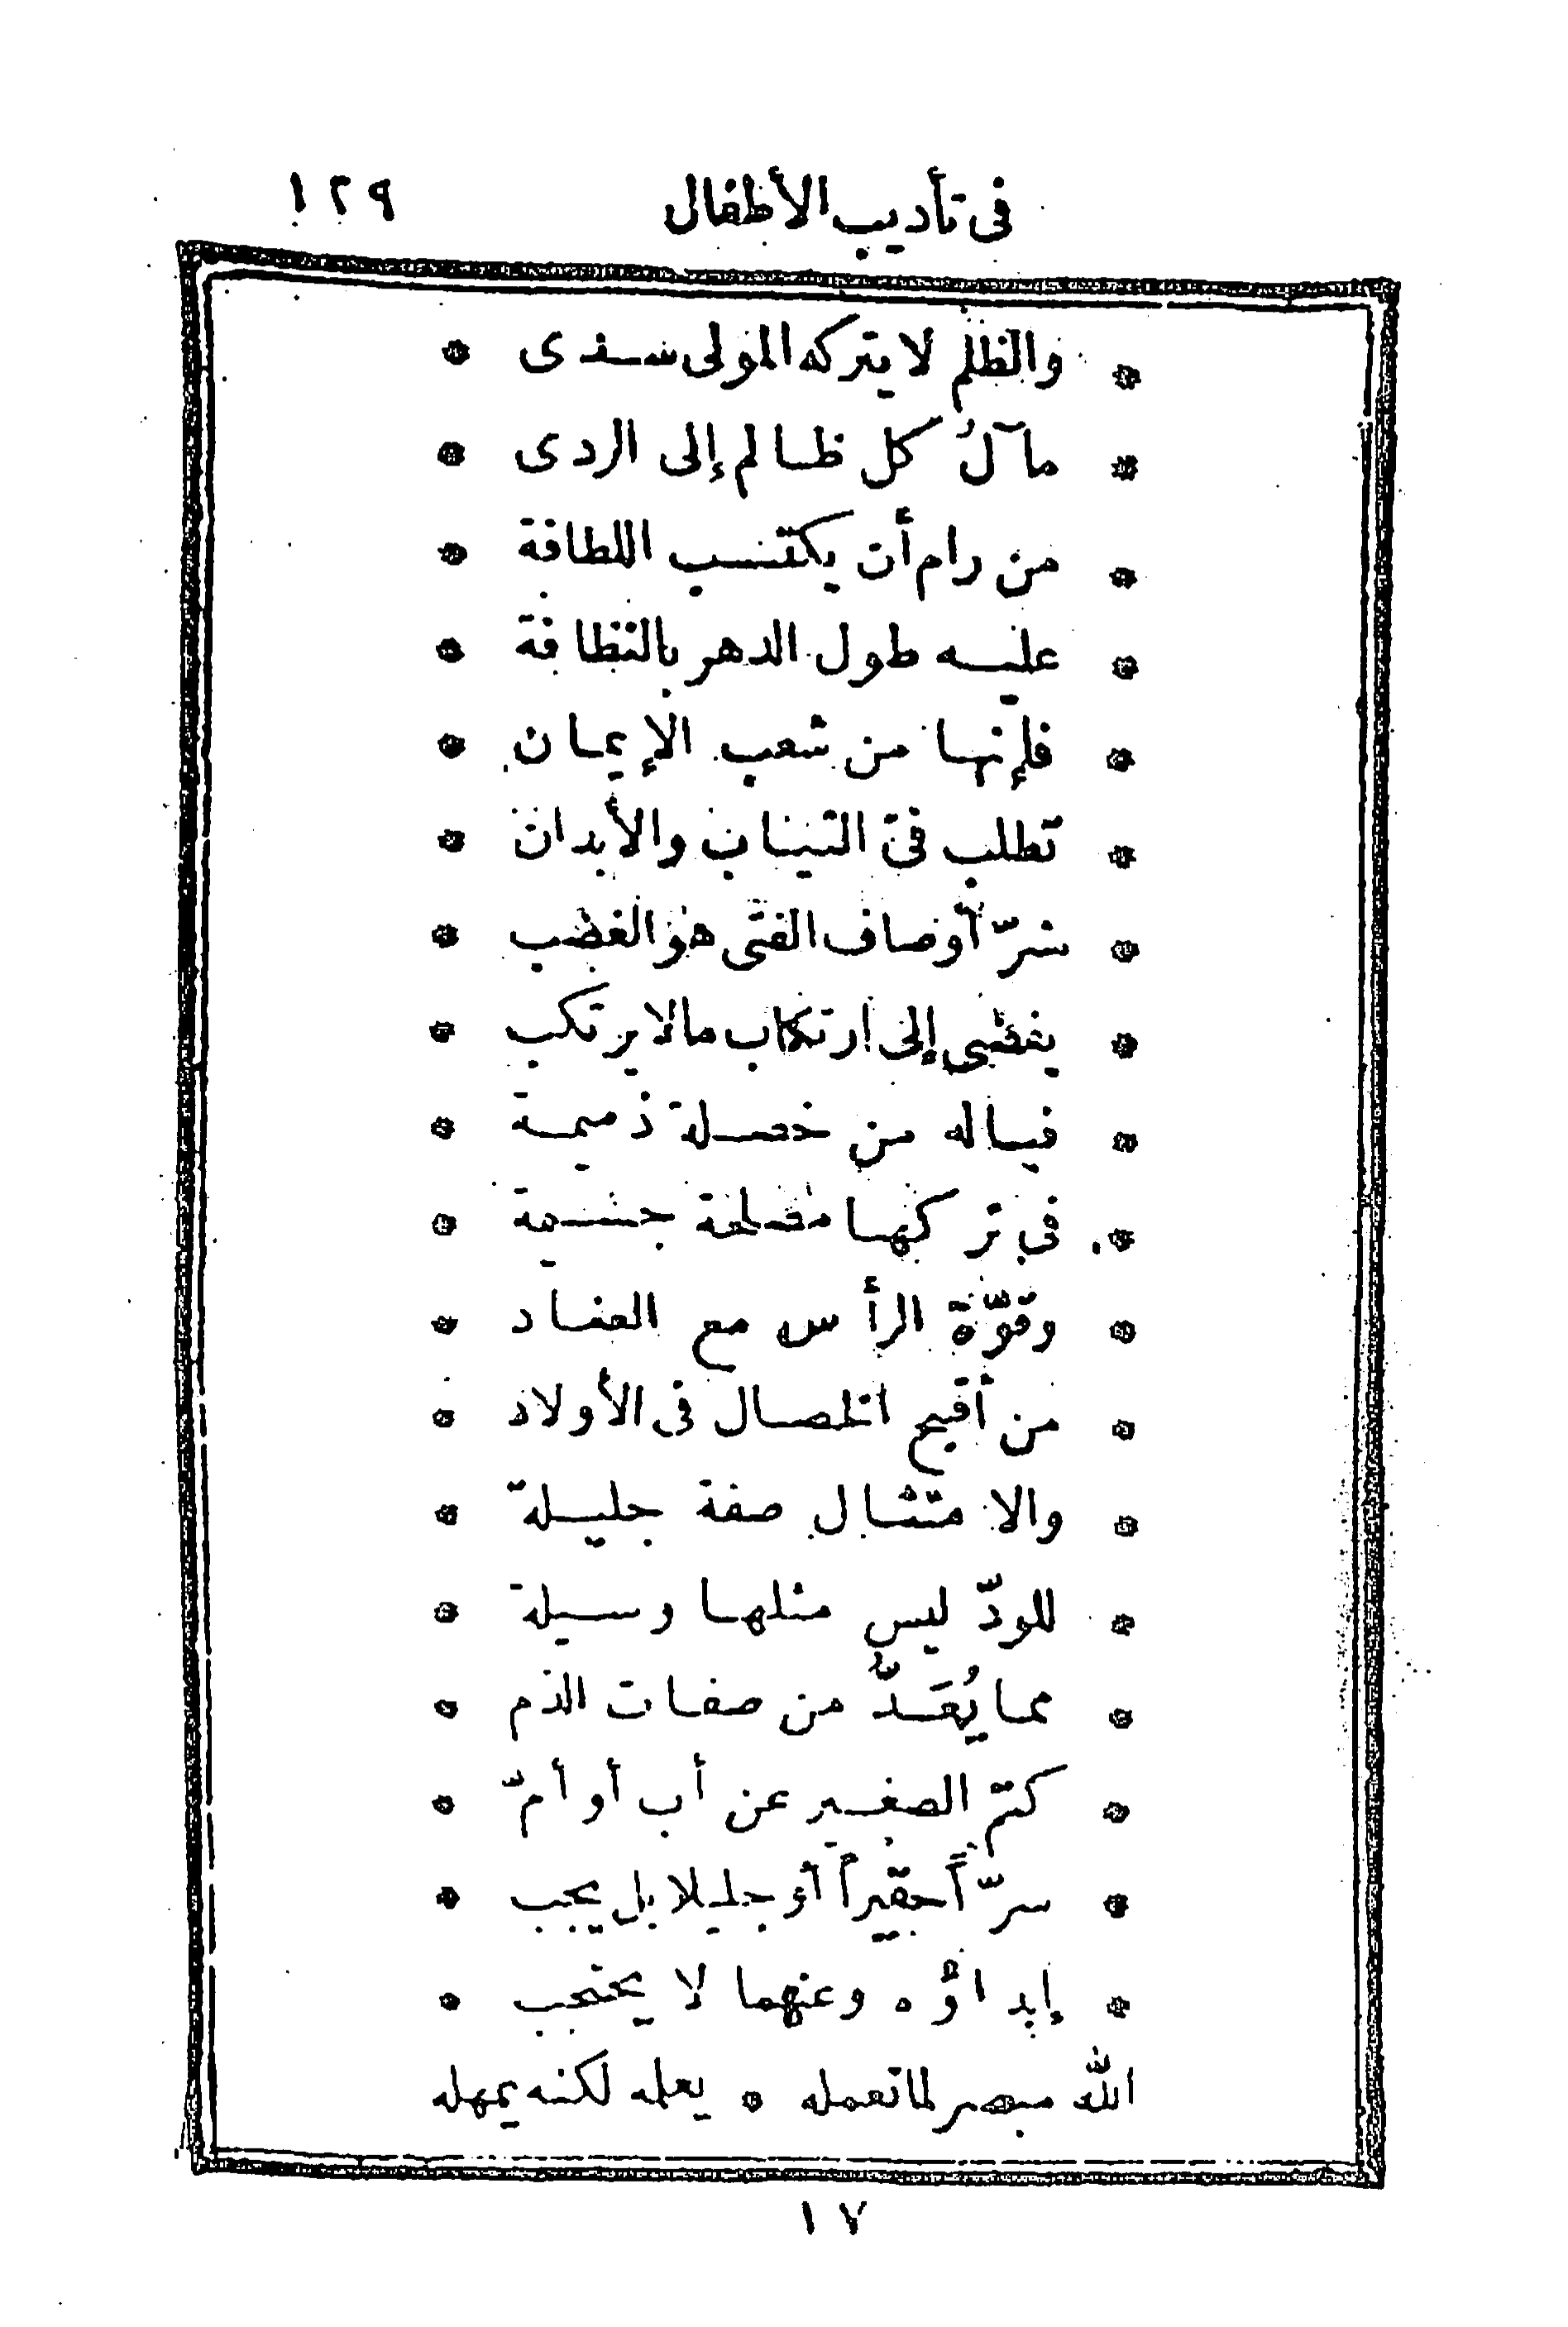 فى تأديب الأطفال ١٢٩
* والظلم لا يتركه المولى سدى *
* مآلُ كل ظالم إلى الردى *
* من رام أن يكتسب اللطافة *
* عليه طول الدهر بالنظافة *
* فإنها من شعب الإيمان *
* تطلب فى الثياب والأبدان *
* شرّ أوصاف الفتى هو الغضب *
* يفضى إلى ارتكاب مالا يرتكب *
* فياله من خصلة ذميمة *
* فى تركها مصلحة جسيمة *
* وقوّة الرأس مع العناد *
* من أقبح الخصال فى الأولاد *
* والامتثال صفة جليلة *
* للودّ ليس مثلها وسيلة *
* مما يُعَدُّ من صفات الذم *
* كتم الصغير عن أب أو أمّ *
* سرّاً حقيراً أو جليلا بل يجب *
* إبداؤه وعنهما لا يحتجب *
الله مبصر لما تعمله * يعلمه لكنه يمهله
١٧